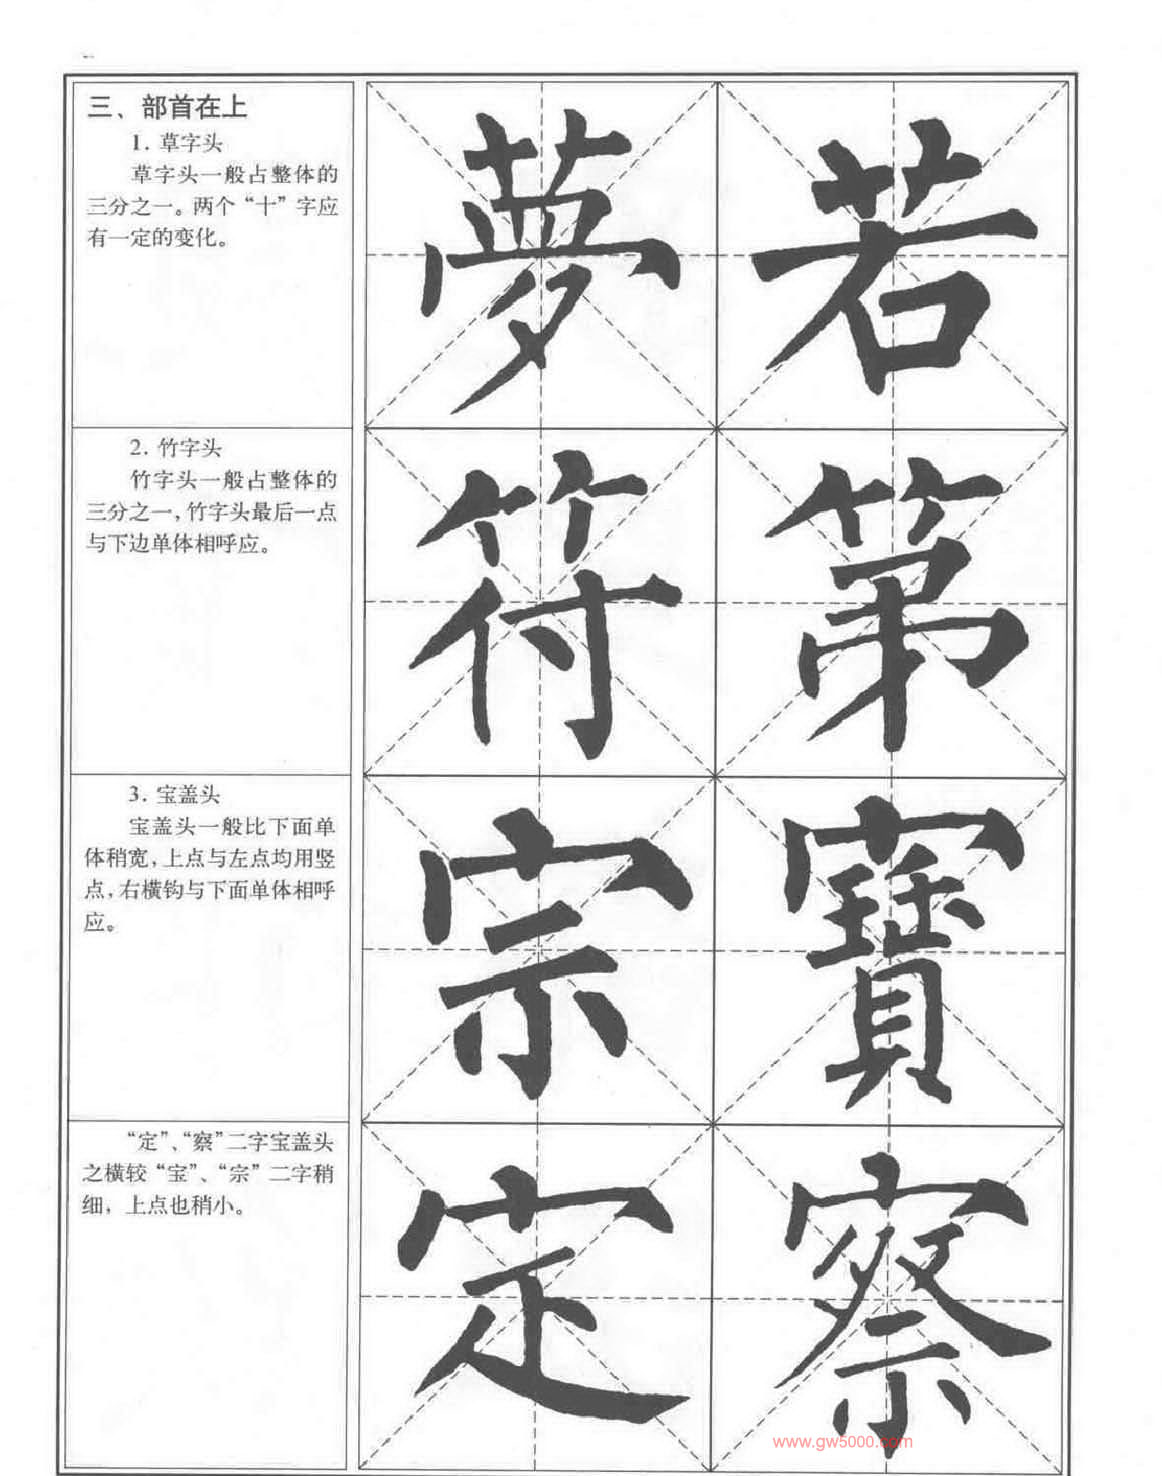 三、部首在上
1. 草字头
草字头一般占整体的
三分之一。两个“十”字应
有一定的变化。
夢 若
2. 竹字头
竹字头一般占整体的
三分之一，竹字头最后一点
与下边单体相呼应。
符 第
3. 宝盖头
宝盖头一般比下面单
体稍宽，上点与左点均用竖
点，右横钩与下面单体相呼
应。
宗 寶
“定”、“察”二字宝盖头
之横较“宝”、“宗”二字稍
细，上点也稍小。
定 察
www.gw5000.com